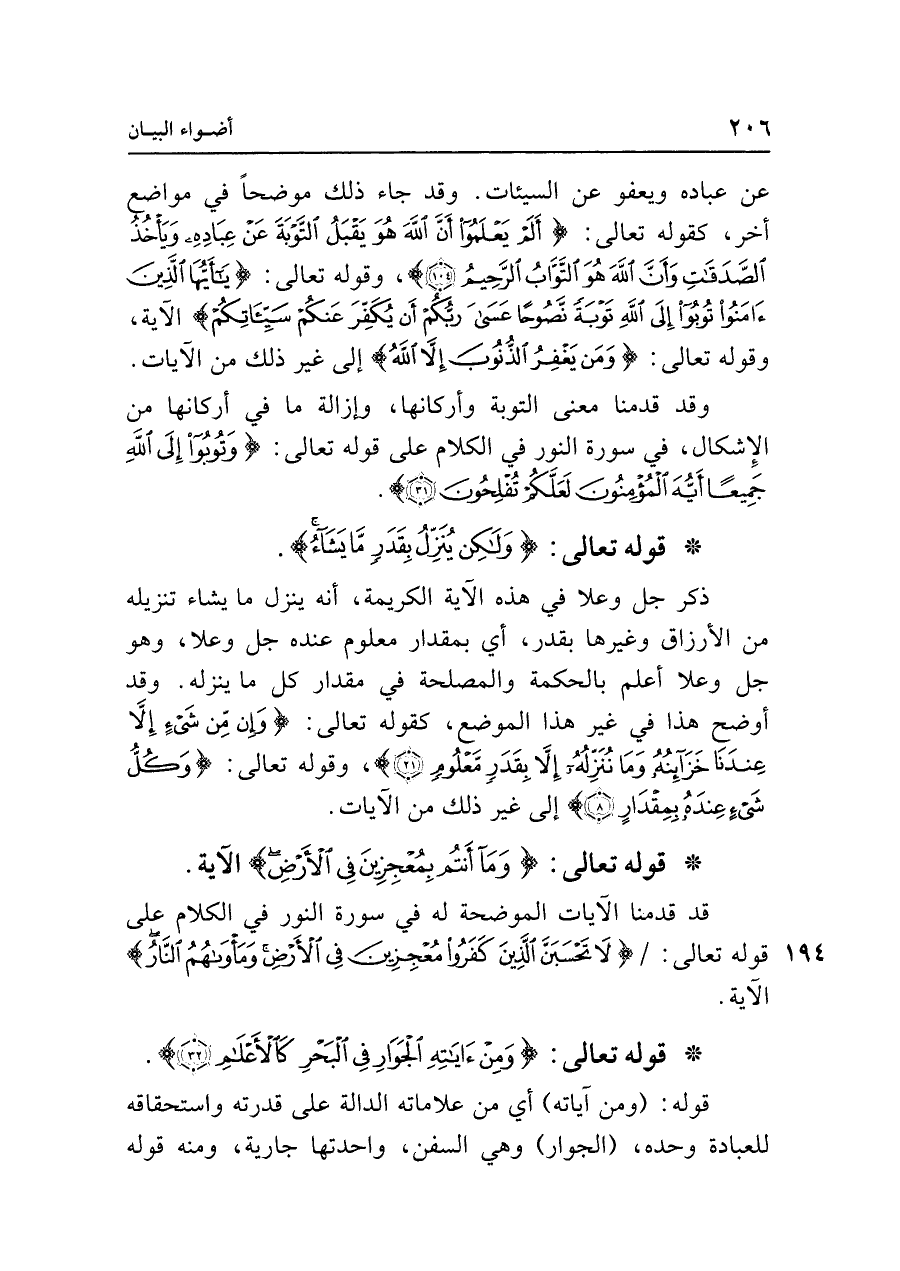 ٢٠٦ أضواء البيان
عن عباده ويعفو عن السيئات. وقد جاء ذلك موضحاً في مواضع
أخر، كقوله تعالى: ﴿ أَلَمْ يَعْلَمُوٓا۟ أَنَّ ٱللَّهَ هُوَ يَقْبَلُ ٱلتَّوْبَةَ عَنْ عِبَادِهِۦ وَيَأْخُذُ
ٱلصَّدَقَٰتِ وَأَنَّ ٱللَّهَ هُوَ ٱلتَّوَّابُ ٱلرَّحِيمُ ١٠٤﴾، وقوله تعالى: ﴿ يَٰٓأَيُّهَا ٱلَّذِينَ
ءَامَنُوا۟ تُوبُوٓا۟ إِلَى ٱللَّهِ تَوْبَةً نَّصُوحًا عَسَىٰ رَبُّكُمْ أَن يُكَفِّرَ عَنكُمْ سَيِّـَٔاتِكُمْ﴾ الآية،
وقوله تعالى: ﴿ وَمَن يَغْفِرُ ٱلذُّنُوبَ إِلَّا ٱللَّهُ﴾ إلى غير ذلك من الآيات.
وقد قدمنا معنى التوبة وأركانها، وإزالة ما في أركانها من
الإِشكال، في سورة النور في الكلام على قوله تعالى: ﴿ وَتُوبُوٓا۟ إِلَى ٱللَّهِ
جَمِيعًا أَيُّهَ ٱلْمُؤْمِنُونَ لَعَلَّكُمْ تُفْلِحُونَ ٣١﴾.
* قوله تعالى: ﴿ وَلَٰكِن يُنَزِّلُ بِقَدَرٍ مَّا يَشَآءُ ۚ﴾.
ذكر جل وعلا في هذه الآية الكريمة، أنه ينزل ما يشاء تنزيله
من الأرزاق وغيرها بقدر، أي بمقدار معلوم عنده جل وعلا، وهو
جل وعلا أعلم بالحكمة والمصلحة في مقدار كل ما ينزله. وقد
أوضح هذا في غير هذا الموضع، كقوله تعالى: ﴿ وَإِن مِّن شَىْءٍ إِلَّا
عِندَنَا خَزَآئِنُهُۥ وَمَا نُنَزِّلُهُۥٓ إِلَّا بِقَدَرٍ مَّعْلُومٍ ٢١﴾، وقوله تعالى: ﴿ وَكُلُّ
شَىْءٍ عِندَهُۥ بِمِقْدَارٍ ٨﴾ إلى غير ذلك من الآيات.
* قوله تعالى: ﴿ وَمَآ أَنتُم بِمُعْجِزِينَ فِى ٱلْأَرْضِ ۖ﴾ الآية.
قد قدمنا الآيات الموضحة له في سورة النور في الكلام على
١٩٤ قوله تعالى: / ﴿ لَا تَحْسَبَنَّ ٱلَّذِينَ كَفَرُوا۟ مُعْجِزِينَ فِى ٱلْأَرْضِ ۚ وَمَأْوَىٰهُمُ ٱلنَّارُ ۖ﴾
الآية.
* قوله تعالى: ﴿ وَمِنْ ءَايَٰتِهِ ٱلْجَوَارِ فِى ٱلْبَحْرِ كَٱلْأَعْلَٰمِ ٣٢﴾.
قوله: (ومن آياته) أي من علاماته الدالة على قدرته واستحقاقه
للعبادة وحده، (الجوار) وهي السفن، واحدتها جارية، ومنه قوله